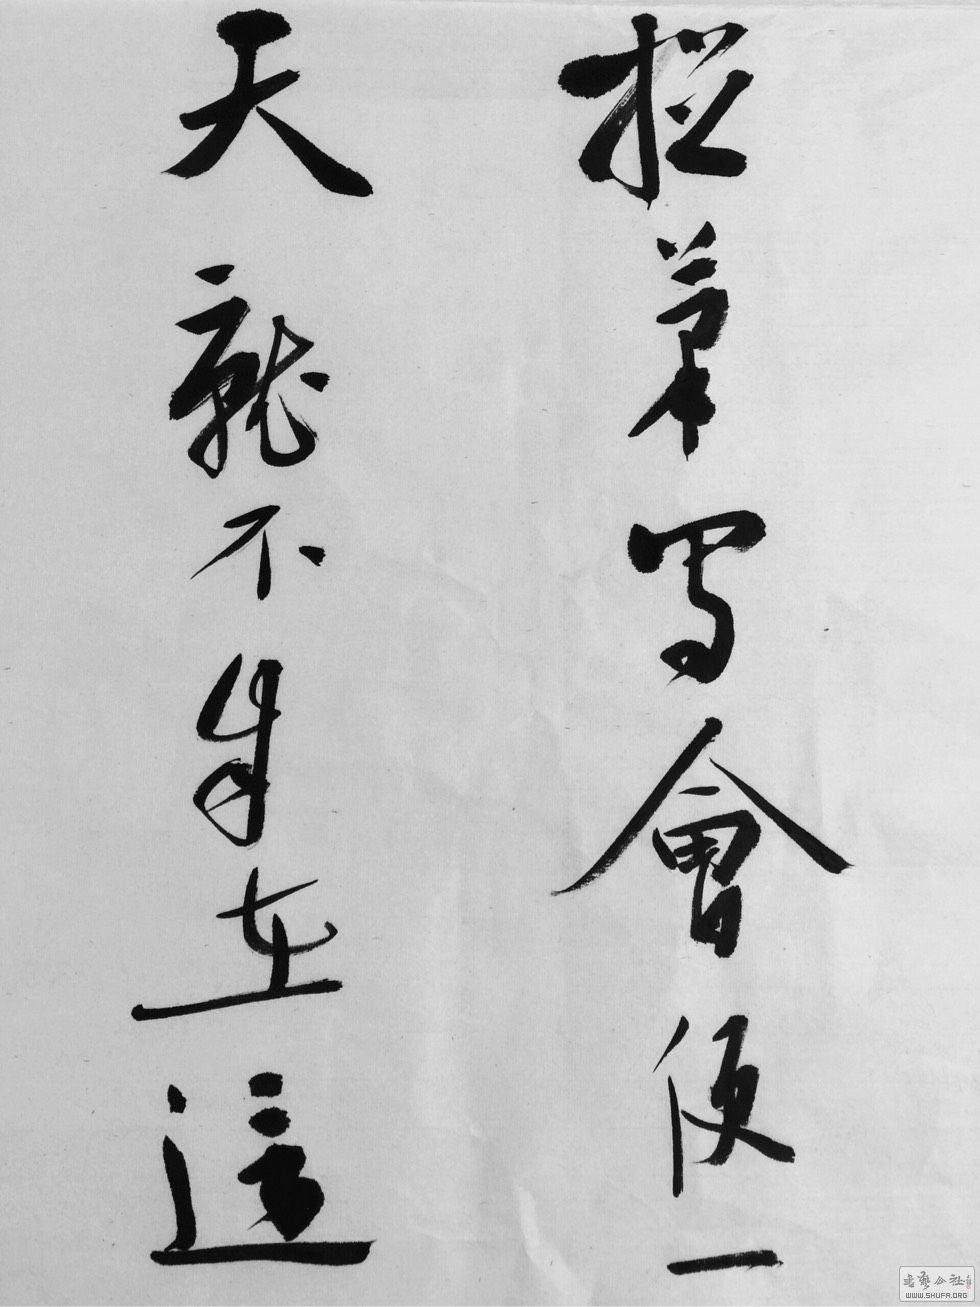 第写會便一
天就不朱在這
書藝公社
WWW.SHUFA.ORG